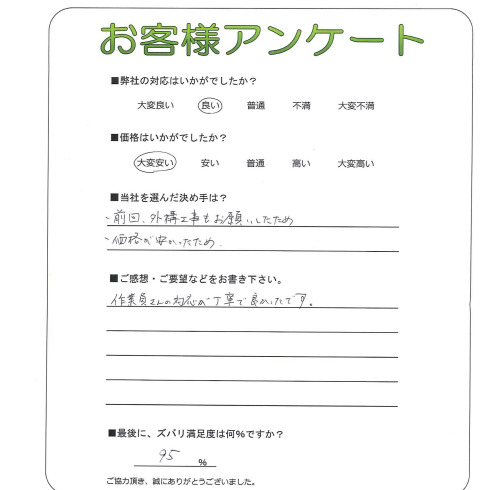 お客様アンケート
■弊社の対応はいかがでしたか？
大変良い　良い　普通　不満　大変不満
■価格はいかがでしたか？
大変安い　安い　普通　高い　大変高い
■当社を選んだ決め手は？
、前回、外構工事もお願いしたため
、価格が安かったため
■ご感想・ご要望などをお書き下さい。
作業員さんの対応が丁寧で良かったです。
■最後に、ズバリ満足度は何%ですか？
95 %
ご協力頂き、誠にありがとうございました。